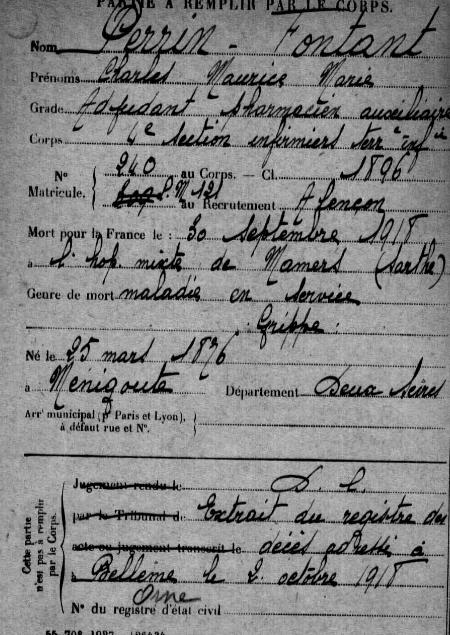 PARTIE À REMPLIR PAR LE CORPS.
Nom Perrin - Fontant
Prénoms Charles Maurice Marie
Grade Adjudant Pharmacien auxiliaire
Corps 4e section infirmiers terr
N° 240 au Corps. — Cl. 1896
Matricule. au Recrutement Alençon
Mort pour la France le : 30 septembre 1918
à l'hop mixte de Mamers (Sarthe)
Genre de mort maladie en service
Grippe
Né le 25 mars 1876
à Ménigoute Département Deux Sèvres
Arr' municipal (pr Paris et Lyon),
à défaut rue et N°.
Cette partie n'est pas à remplir par le Corps.
Jugement rendu le D. C.
par le Tribunal de Extrait du registre des
acte ou jugement transcrit le décès adressé à
à Bellême le 2 octobre 1918
Orne
N° du registre d'état civil